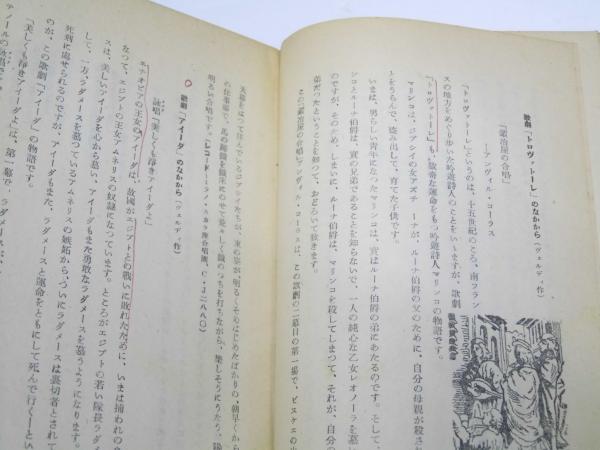 歌劇「トロヴァトーレ」のなかから(ヴェルディ作)
「鍛冶屋の合唱」
―アンヴィル・コーラス
「トロヴァトーレ」というのは、十五世紀のころ、南フラン
スの地方をめぐり歩いた吟遊詩人のことをいいますが、歌劇
「トロヴァトーレ」も、数奇な運命をもつ吟遊詩人マリンコの物語です。
マリンコは、ジプシイの女アズチーナが、ルーナ伯爵の父のために、自分の母親が殺され
とをうらんで、盗み出して、育てた子供です。
いまは、男らしい青年になったマリンコは、実はルーナ伯爵の弟にあたるのです。そして、
ンコとルーナ伯爵は、実の兄弟であることを知らないで、一人の純心な乙女レオノーラを墓い
のですが、そのため、しまいに、ルーナ伯爵は、マリンコを殺してしまつて、それが、自分の
弟だつたということを知つて、おどろいて歎きます。
この「鍛冶屋の合唱」アンヴィル・コーラスは、この歌劇の二幕目の第一場で、ビスケエの山
天幕をはつて住んでいるジプシイたちが、東の姿が明るくそめはじめたばかりの、朝早くから
の仕事場で、馬の蹄鉄を鍛冶にのせて愛々しく鎚のつちを打ちながら、楽しそうにうたう、陽
明るい合唱です。(レコード―ミラノ・スカラ座合唱團、C・J二八八〇)
歌劇「アイーダ」のなかから(ヴェルディ作)
詠唱「美しくも浄きアイーダよ」
エチオピアの王女のアイーダは、故國がエジプトとの戦いに敗れたために、いまは捕われの身
なつて、エジプトの王女アムネリスの奴隷になつています。ところがエジプトの若い隊長ラダメ
スは、美しいアイーダを心から慕い、アイーダもまた勇敢なラダメースを慕うようになります。
して、一方、ラダメースを慕つているアムネリスの嫉妬から、ついにラダメースは裏切者とされて
死刑に處せられるのですが、アイーダもまた、ラダメースと運命をともにして死んで行く―とい
のが、この歌劇「アイーダ」の物語です。
「美しくも浄きアイーダよ」は、第一幕で、ラダメースが
テノールの詠唱で